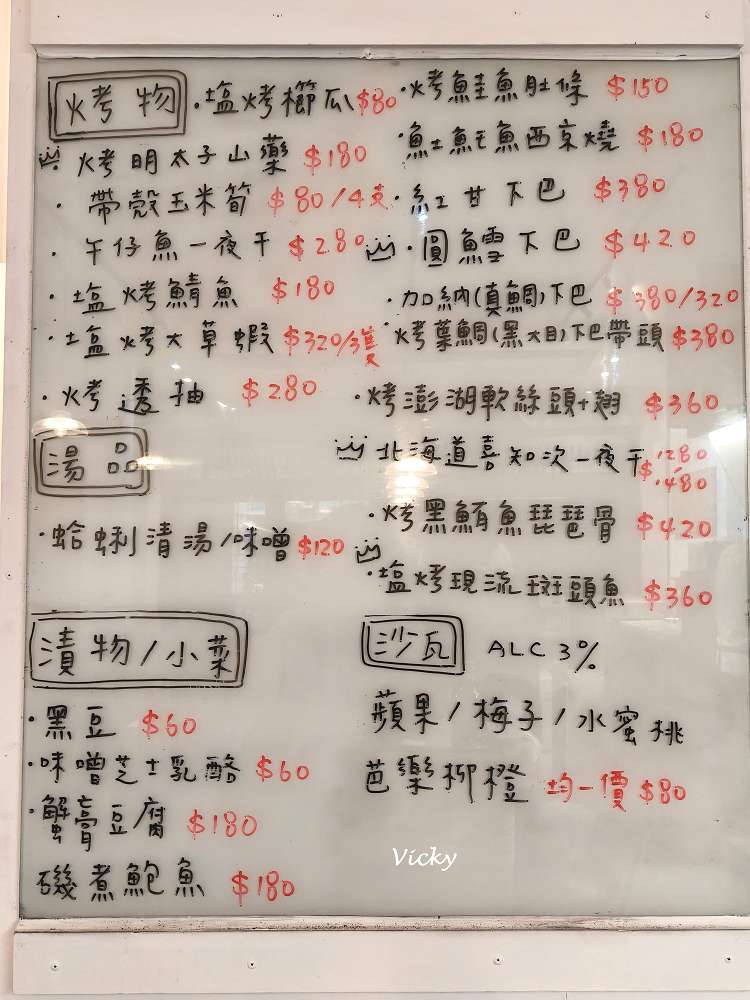 烤物
・塩烤櫛瓜$80
烤明太子山藥 $180
・帶殼玉米筍 $80/4支
・午仔魚一夜干 $280
・塩烤鯖魚 $180
・塩烤大草蝦 $320/3隻
・烤透抽 $280
湯品
・蛤蜊清湯/味噌 $120
漬物/小菜
・黑豆 $60
・味噌芝士乳酪 $60
・蟹膏豆腐 $180
磯煮鮑魚 $180
・烤鮭魚肚條 $150
・魠魚西京燒 $180
・紅甘下巴 $380
・圓鱈下巴 $420
・加納(真鯛)下巴 $380/320
・烤葉鯛(黑大目)下巴帶頭 $380
・烤澎湖軟絲頭+翅 $360
北海道喜知次一夜干 $1280 / 1480
・烤黑鮪魚琵琶骨 $420
・塩烤現流斑頭魚 $360
沙瓦 ALC 3%
蘋果/梅子/水蜜桃
芭樂柳橙 均一價 $80
Vicky